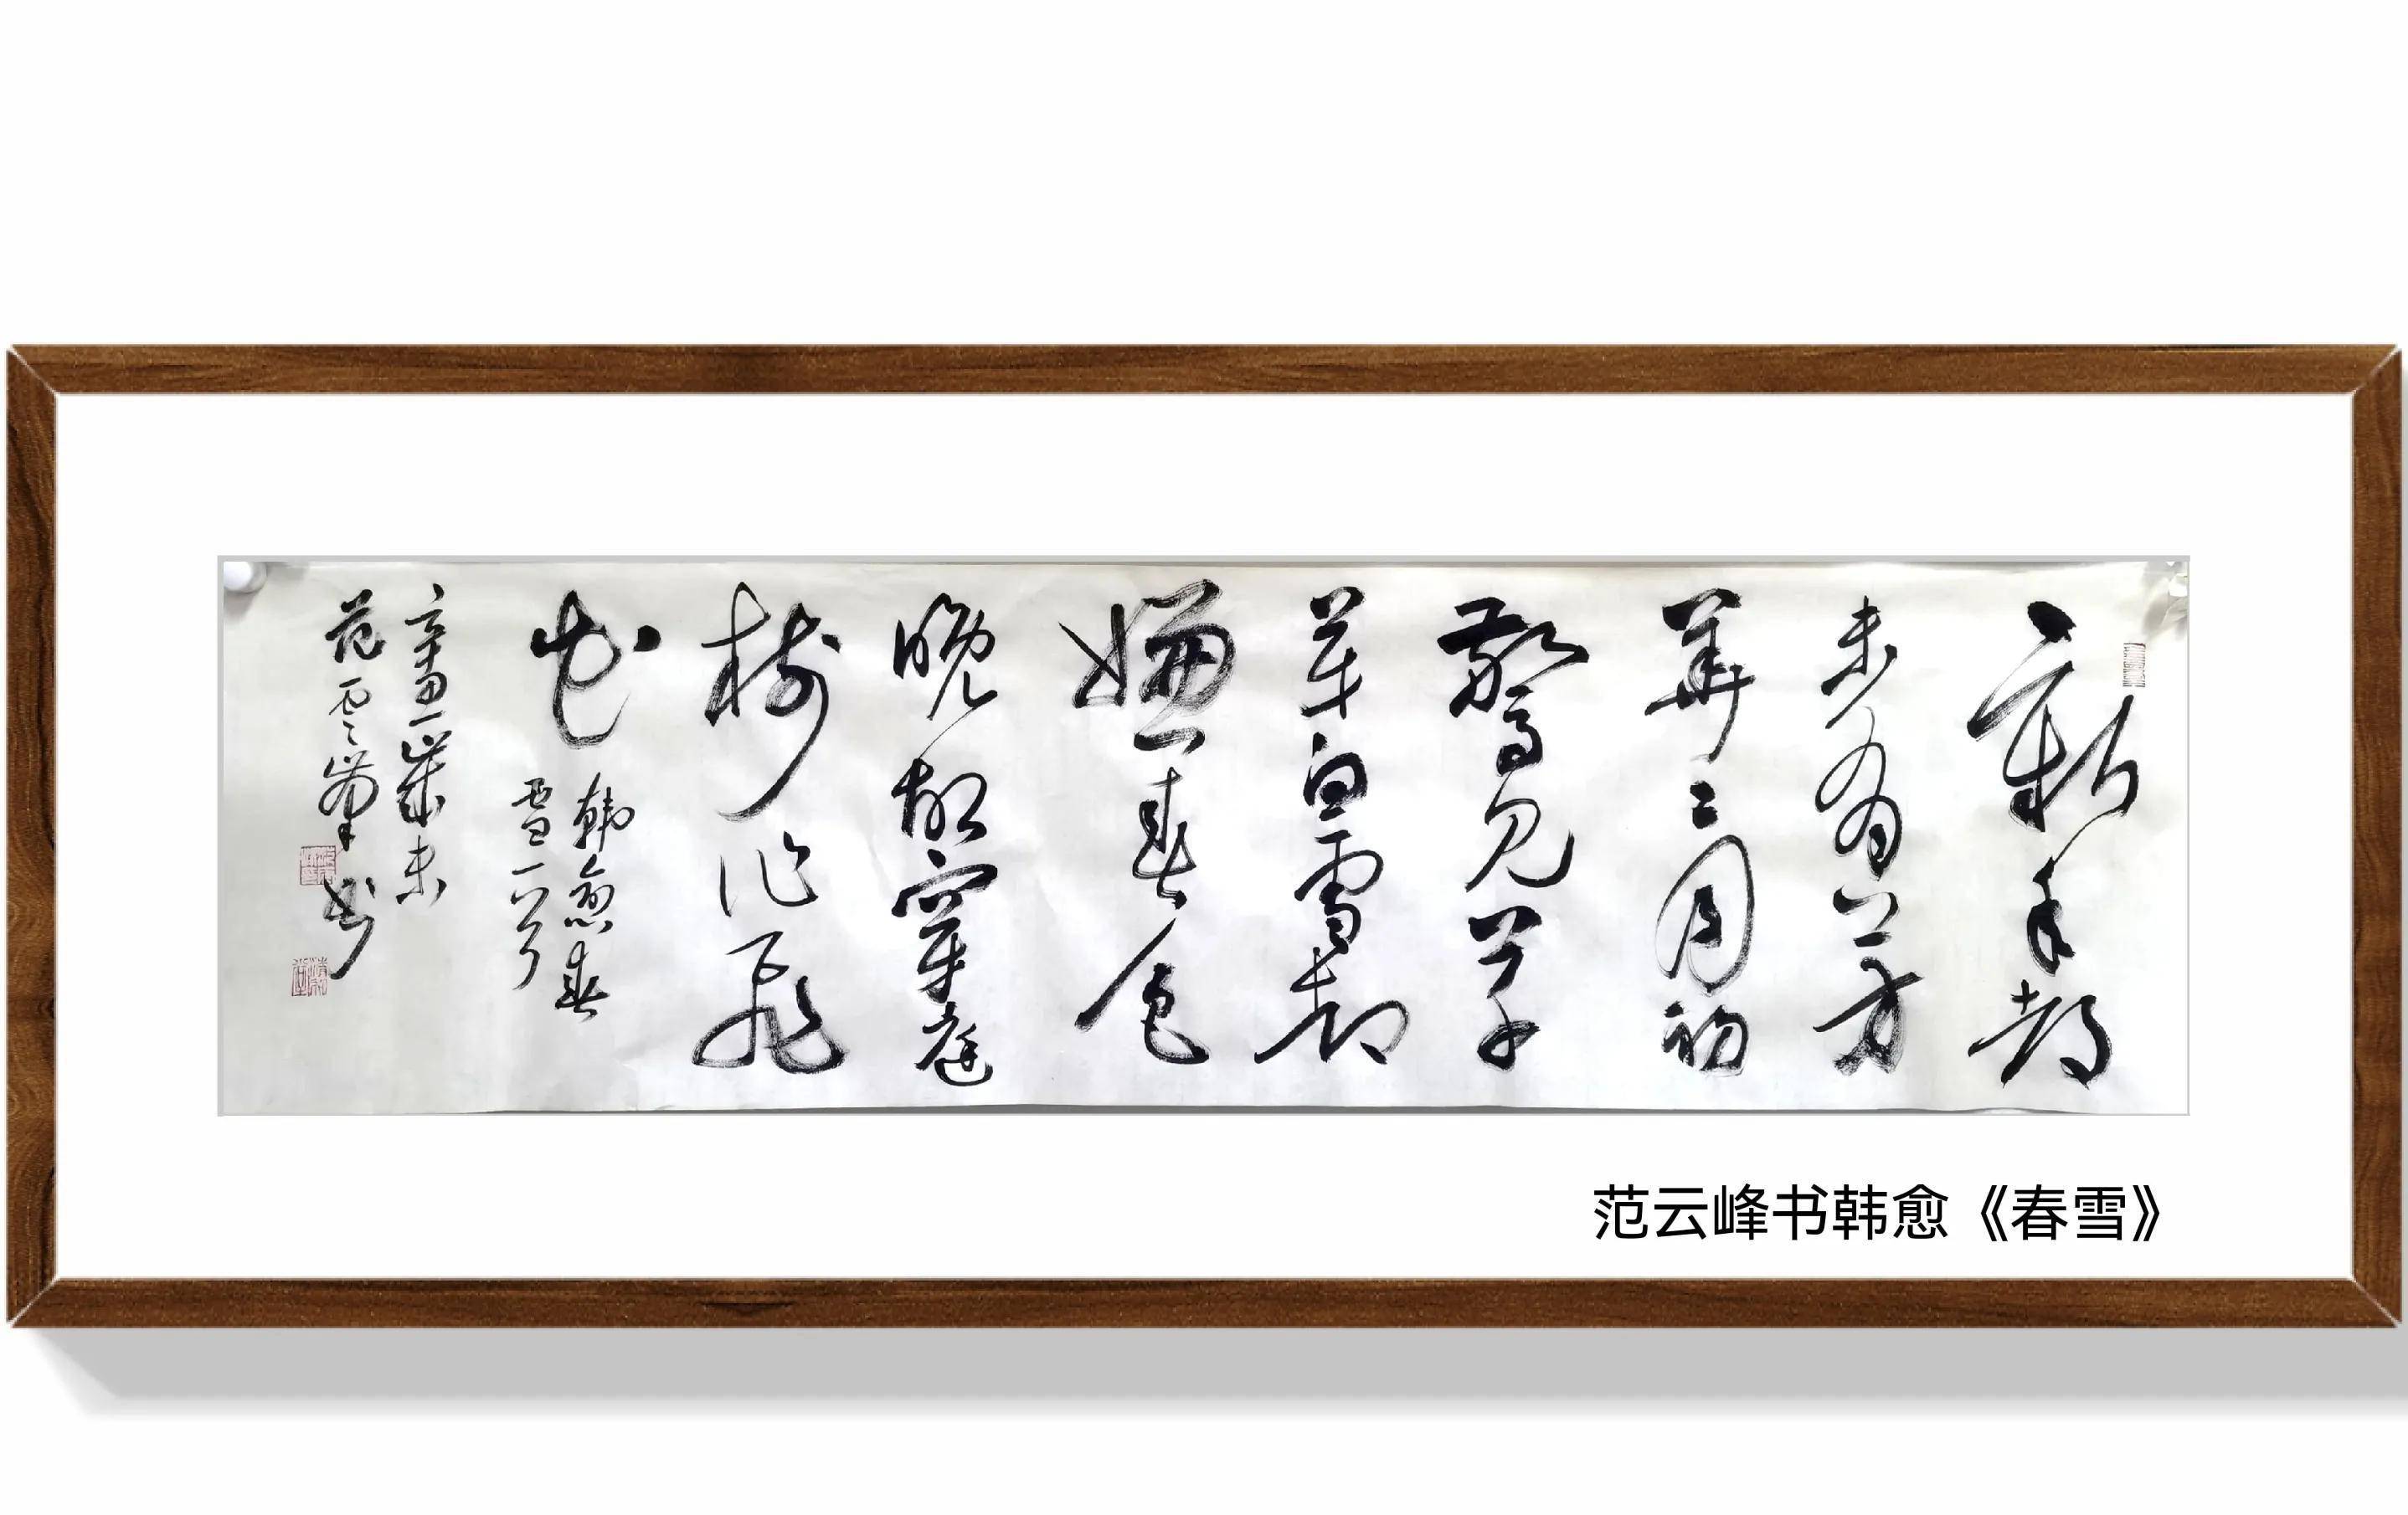 新年都
未有芳
華二月初
驚見草
芽白雪却
嫌春色
晚故穿庭
樹作飛
花
韩愈春
雪一首
辛丑歲末
范雲峯书
范云峰书韩愈《春雪》